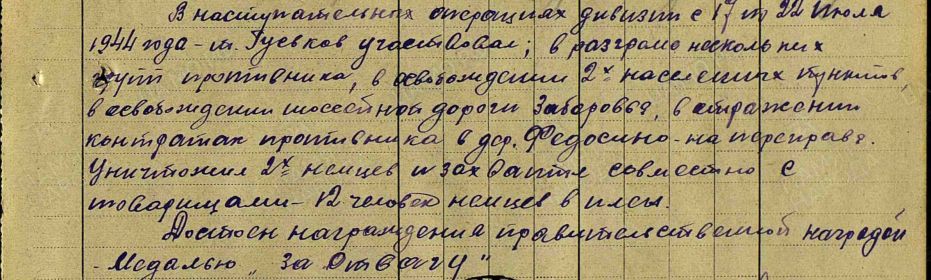 В наступательных операциях дивизии с 17 по 22 июля
1944 года – т. Гуськов участвовал; в разгроме нескольких
групп противника, в освобождении 2х населенных пунктов,
в освобождении шоссейной дороги Заборовья, в отражении
контратак противника в дер. Федосино – на переправе.
Уничтожил 2х немцев и захватил совместно с
товарищами – 12 человек немцев в плен.
Достоин награждения правительственной наградой
– Медалью „За Отвагу"